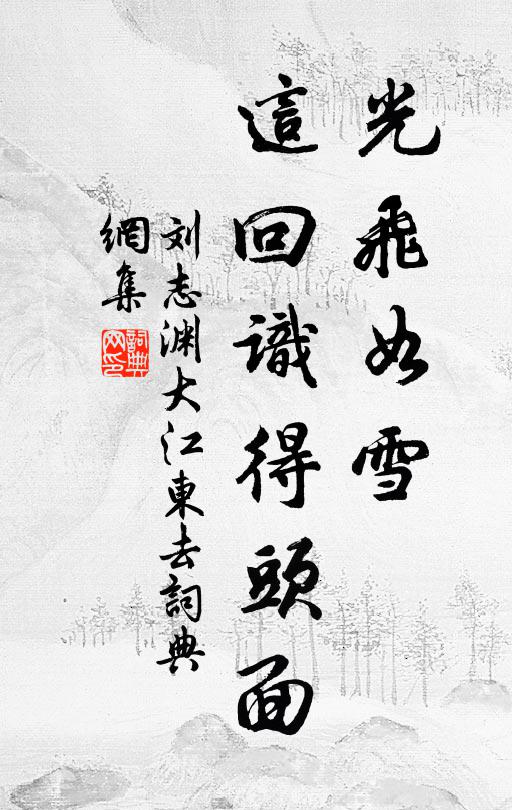 光飛如雪
這回識得頭面
刘志渊大江東去詞典
網集
詞典
网印